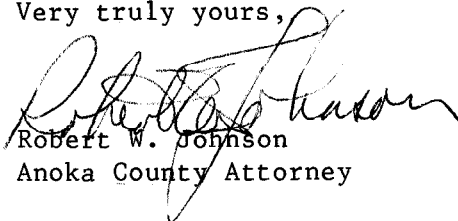 Very truly yours,
Robert W. Johnson
Robert W. Johnson
Anoka County Attorney